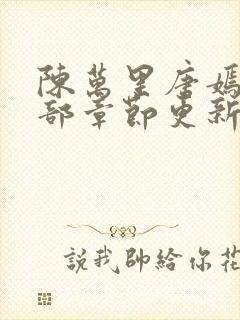 陳萬里唐嫣
部章節更新
說我帥給你花